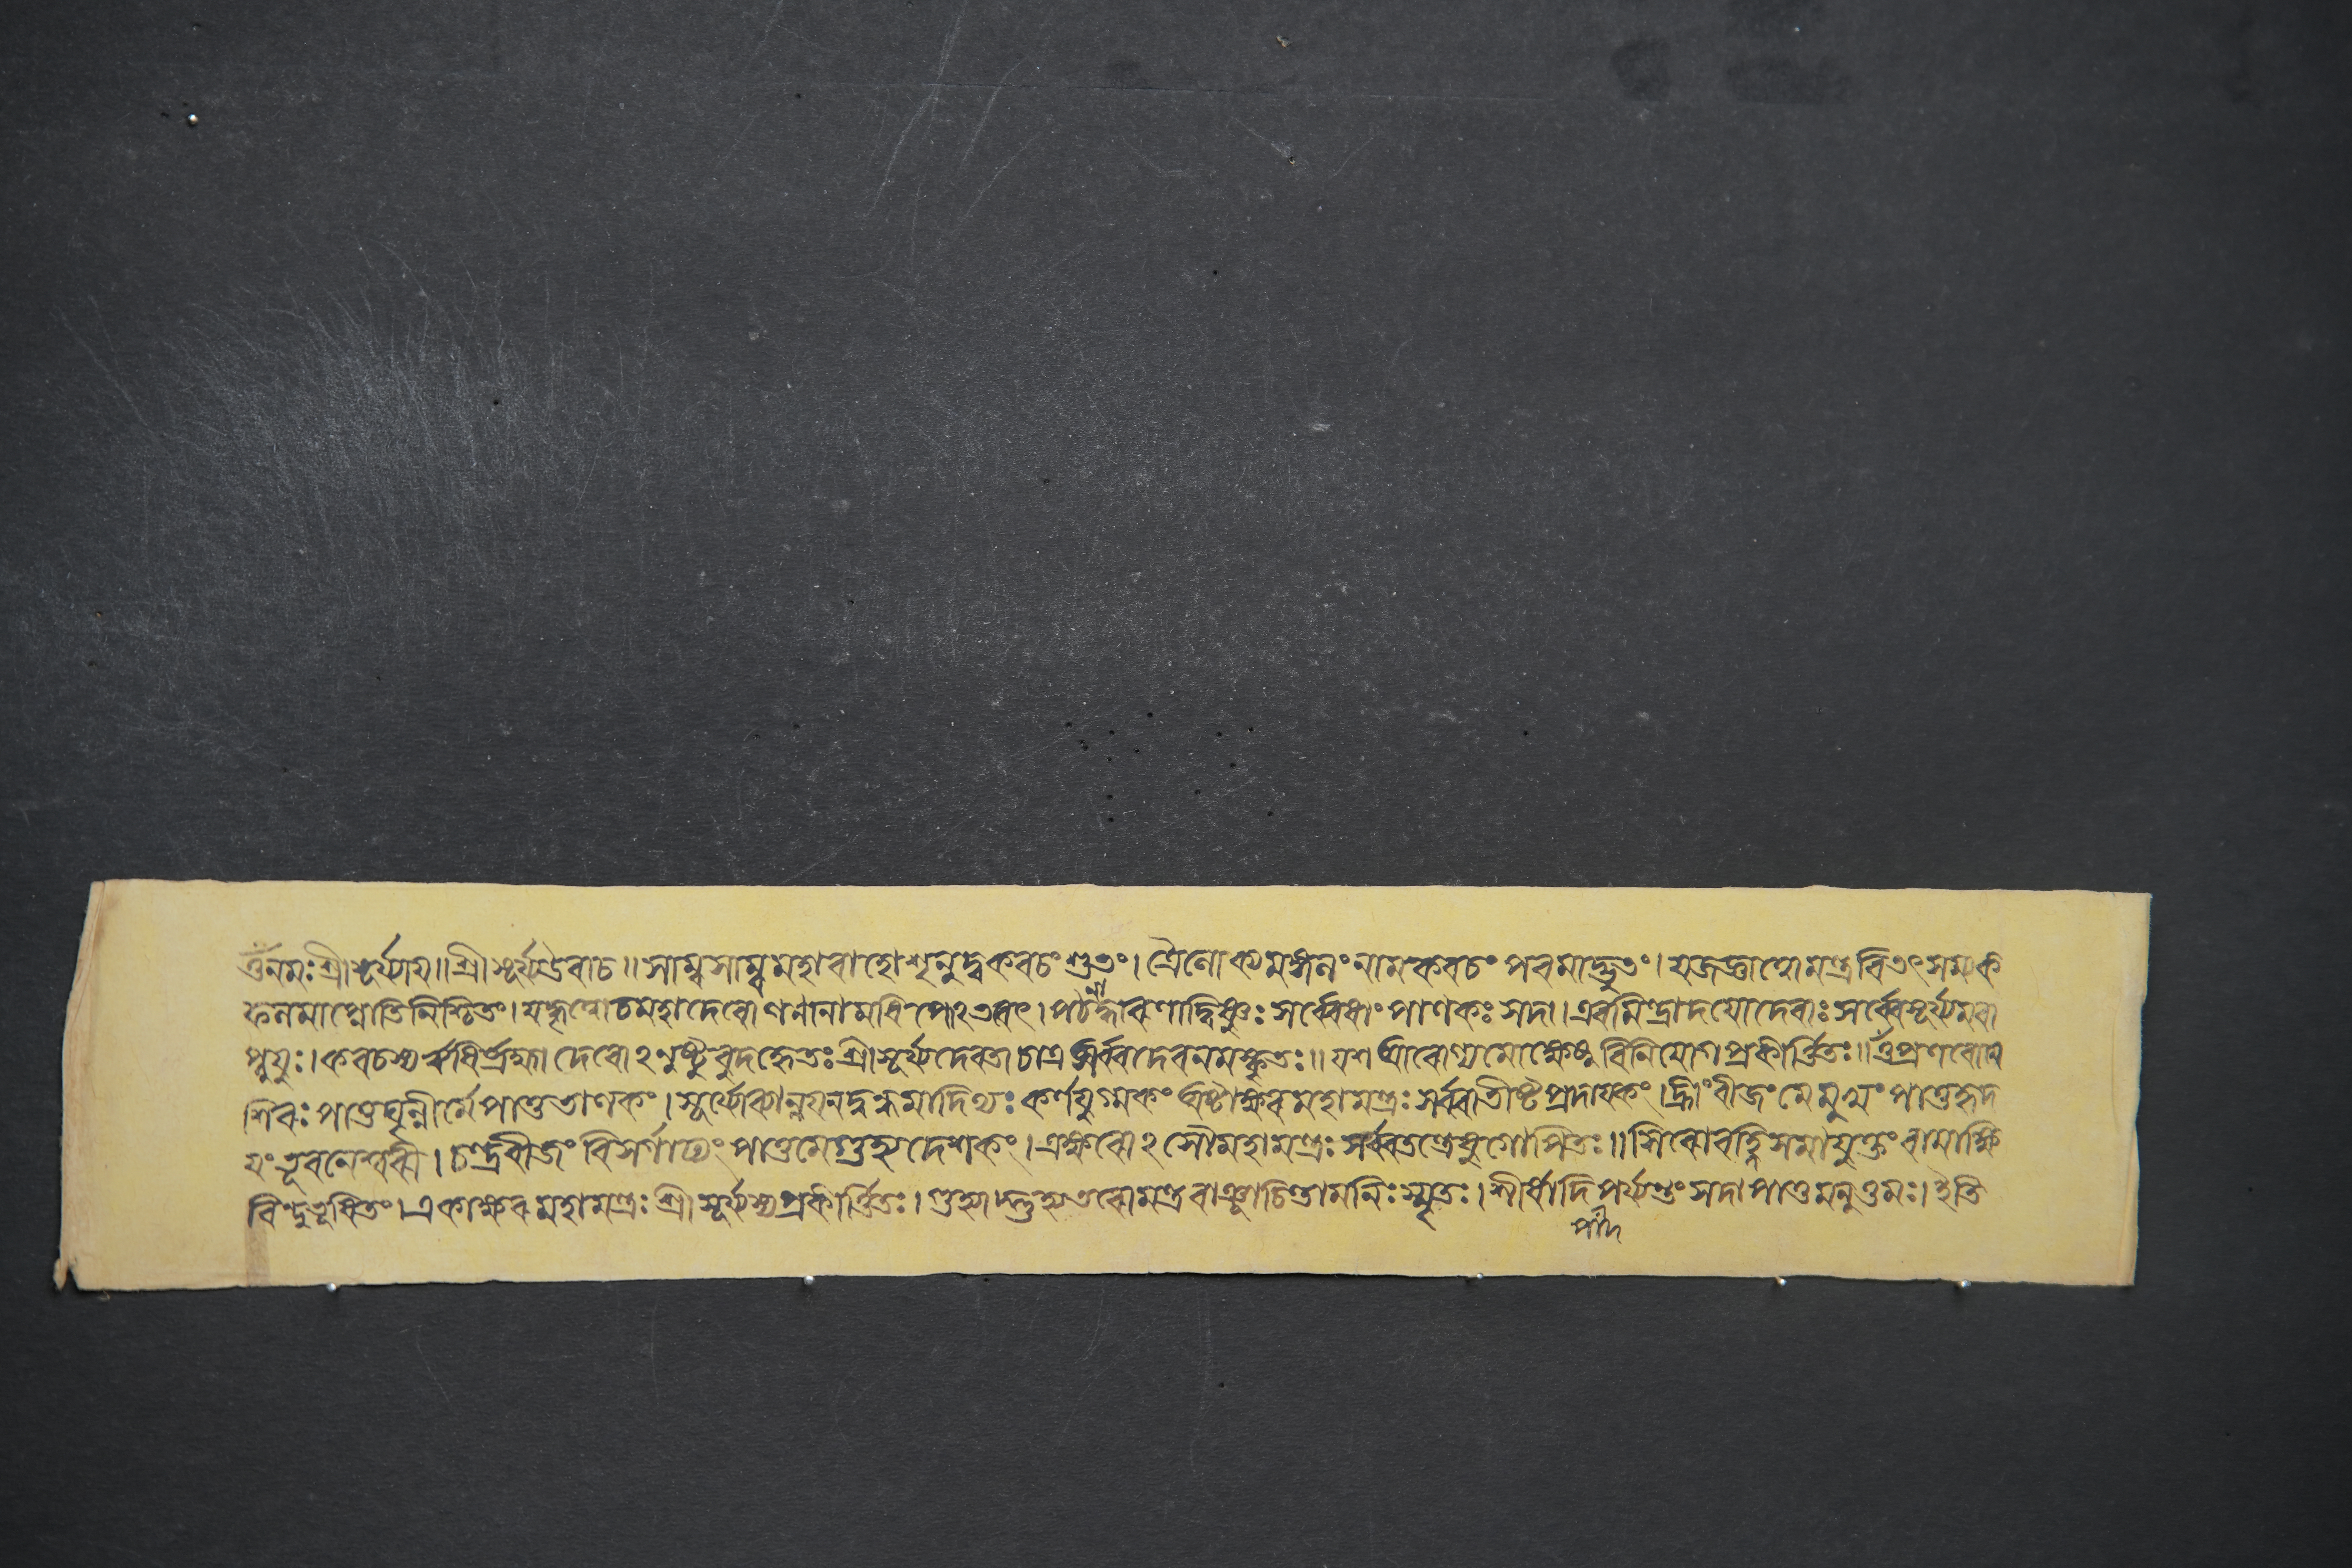 ওঁ নমঃ শ্রীসূর্য্যায়॥ শ্রীসূর্য্যউবাচ॥ সাম্ব সাম্ব মহাবাহো শৃনুষ্ব কবচং শুভং। ত্রৈলোক্যমঙ্গলং নাম কবচং পরমাদ্ভুতং। যজজ্ঞাত্বো মন্ত্রবিতৎ সম্যক
ফলমাপ্নোতি নিশ্চিতং। যদ্ধৃত্বোচ মহাদেবো গণানামধিপোঽভবৎ। পঠনাদ্ধারণাদ্বিষ্ণুঃ সর্ব্বেষাং পালকঃ সদা। এবমিন্দ্রাদয়ো দেবাঃ সর্ব্বৈসূর্য্যমবা
প্নুয়ুঃ। কবচস্য ঋষির্ব্রহ্মা দেবোঽনুষ্টুবুদহ্হেতঃ শ্রীসূর্য্য দেবতা চাএ সর্ব্বদেবনমস্কৃতঃ॥ যশ আরোগ্যমোক্ষেষু বিনিয়োগ প্রকীর্ত্তিতঃ॥ ওঁ প্রণবো মে
শিরঃ পাতু ঘৃন্নীর্মে পাতু ভালকং। সূর্য্যোব্যান্নয়নদ্বন্দ্বমাদিত্যঃ কর্ণযুগ্মকং অষ্টাক্ষর মহামন্ত্রঃ সর্ব্বাভীষ্টপ্রদায়কং। হ্রীং বীজং মে মুখং পাতু হৃদ
য়ং ভুবনেশ্বরী। চন্দ্রবীজং বিসর্গাঢ্যং পাতু মে গুহ্যদেশকং। এক্ষরোঽসৌ মহামন্ত্রঃ সর্ব্বতন্ত্রেষু গোপিতঃ॥ শিবোবহ্নিসমাযুক্তং বামাক্ষি
বিন্দুভূষিতং। একাক্ষর মহামন্ত্রঃ শ্রীসূর্য্যস্য প্রকীর্ত্তিতঃ। গুহ্যাদ্গুহ্যতরো মন্ত্র বাঞ্ছাচিন্তামনিঃ স্মৃতঃ। শীর্ষাদি পর্য্যন্তং সদা পাতু মনুত্তমঃ। ইতি
পাদ